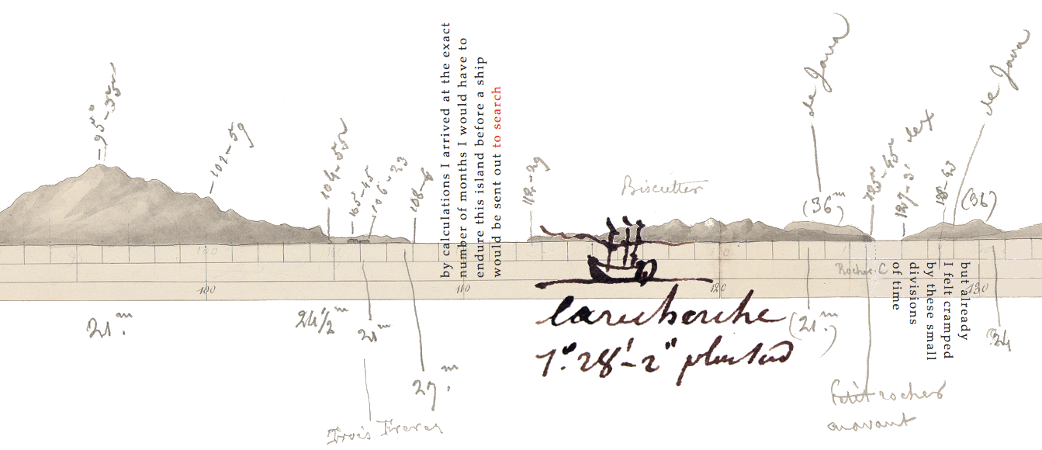 95°-35'
102-59
104-55
105-45
106-23
108-6
by calculations I arrived at the exact
number of months I would have to
endure this island before a ship
would be sent out to search
112-29
Biscuitter
de Java
(36m)
127-3
128-43
de Java
(36)
100
110
120
130
Rocher C
but already
I felt cramped
by these small
divisions
of time
21.m
24 1/2 m
21 m
27.m
larecherche
1° 28'-2" plustard
(21.m)
34
Trois Freres
Petit rocher
en avant